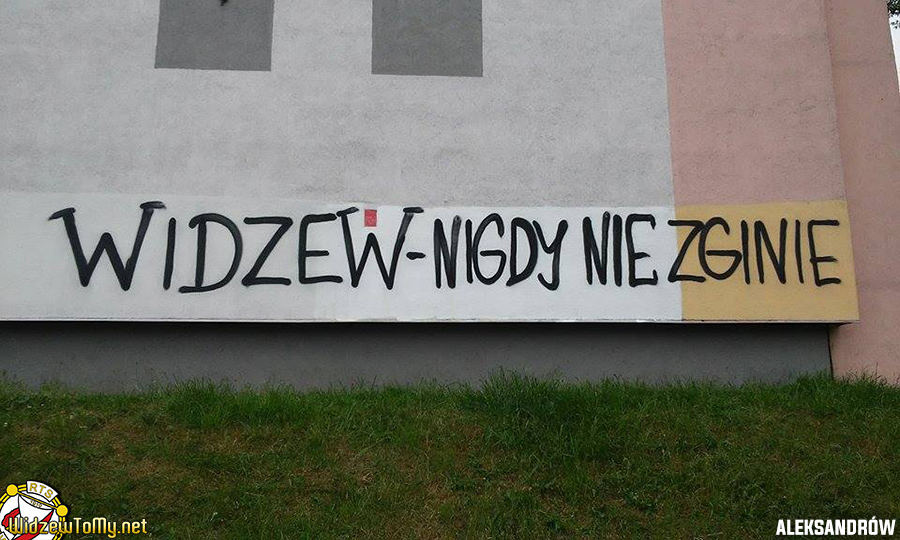 WIDZEW-NIGDY NIE ZGINIE
RTS
WidzewToMy.net
ALEKSANDRÓW